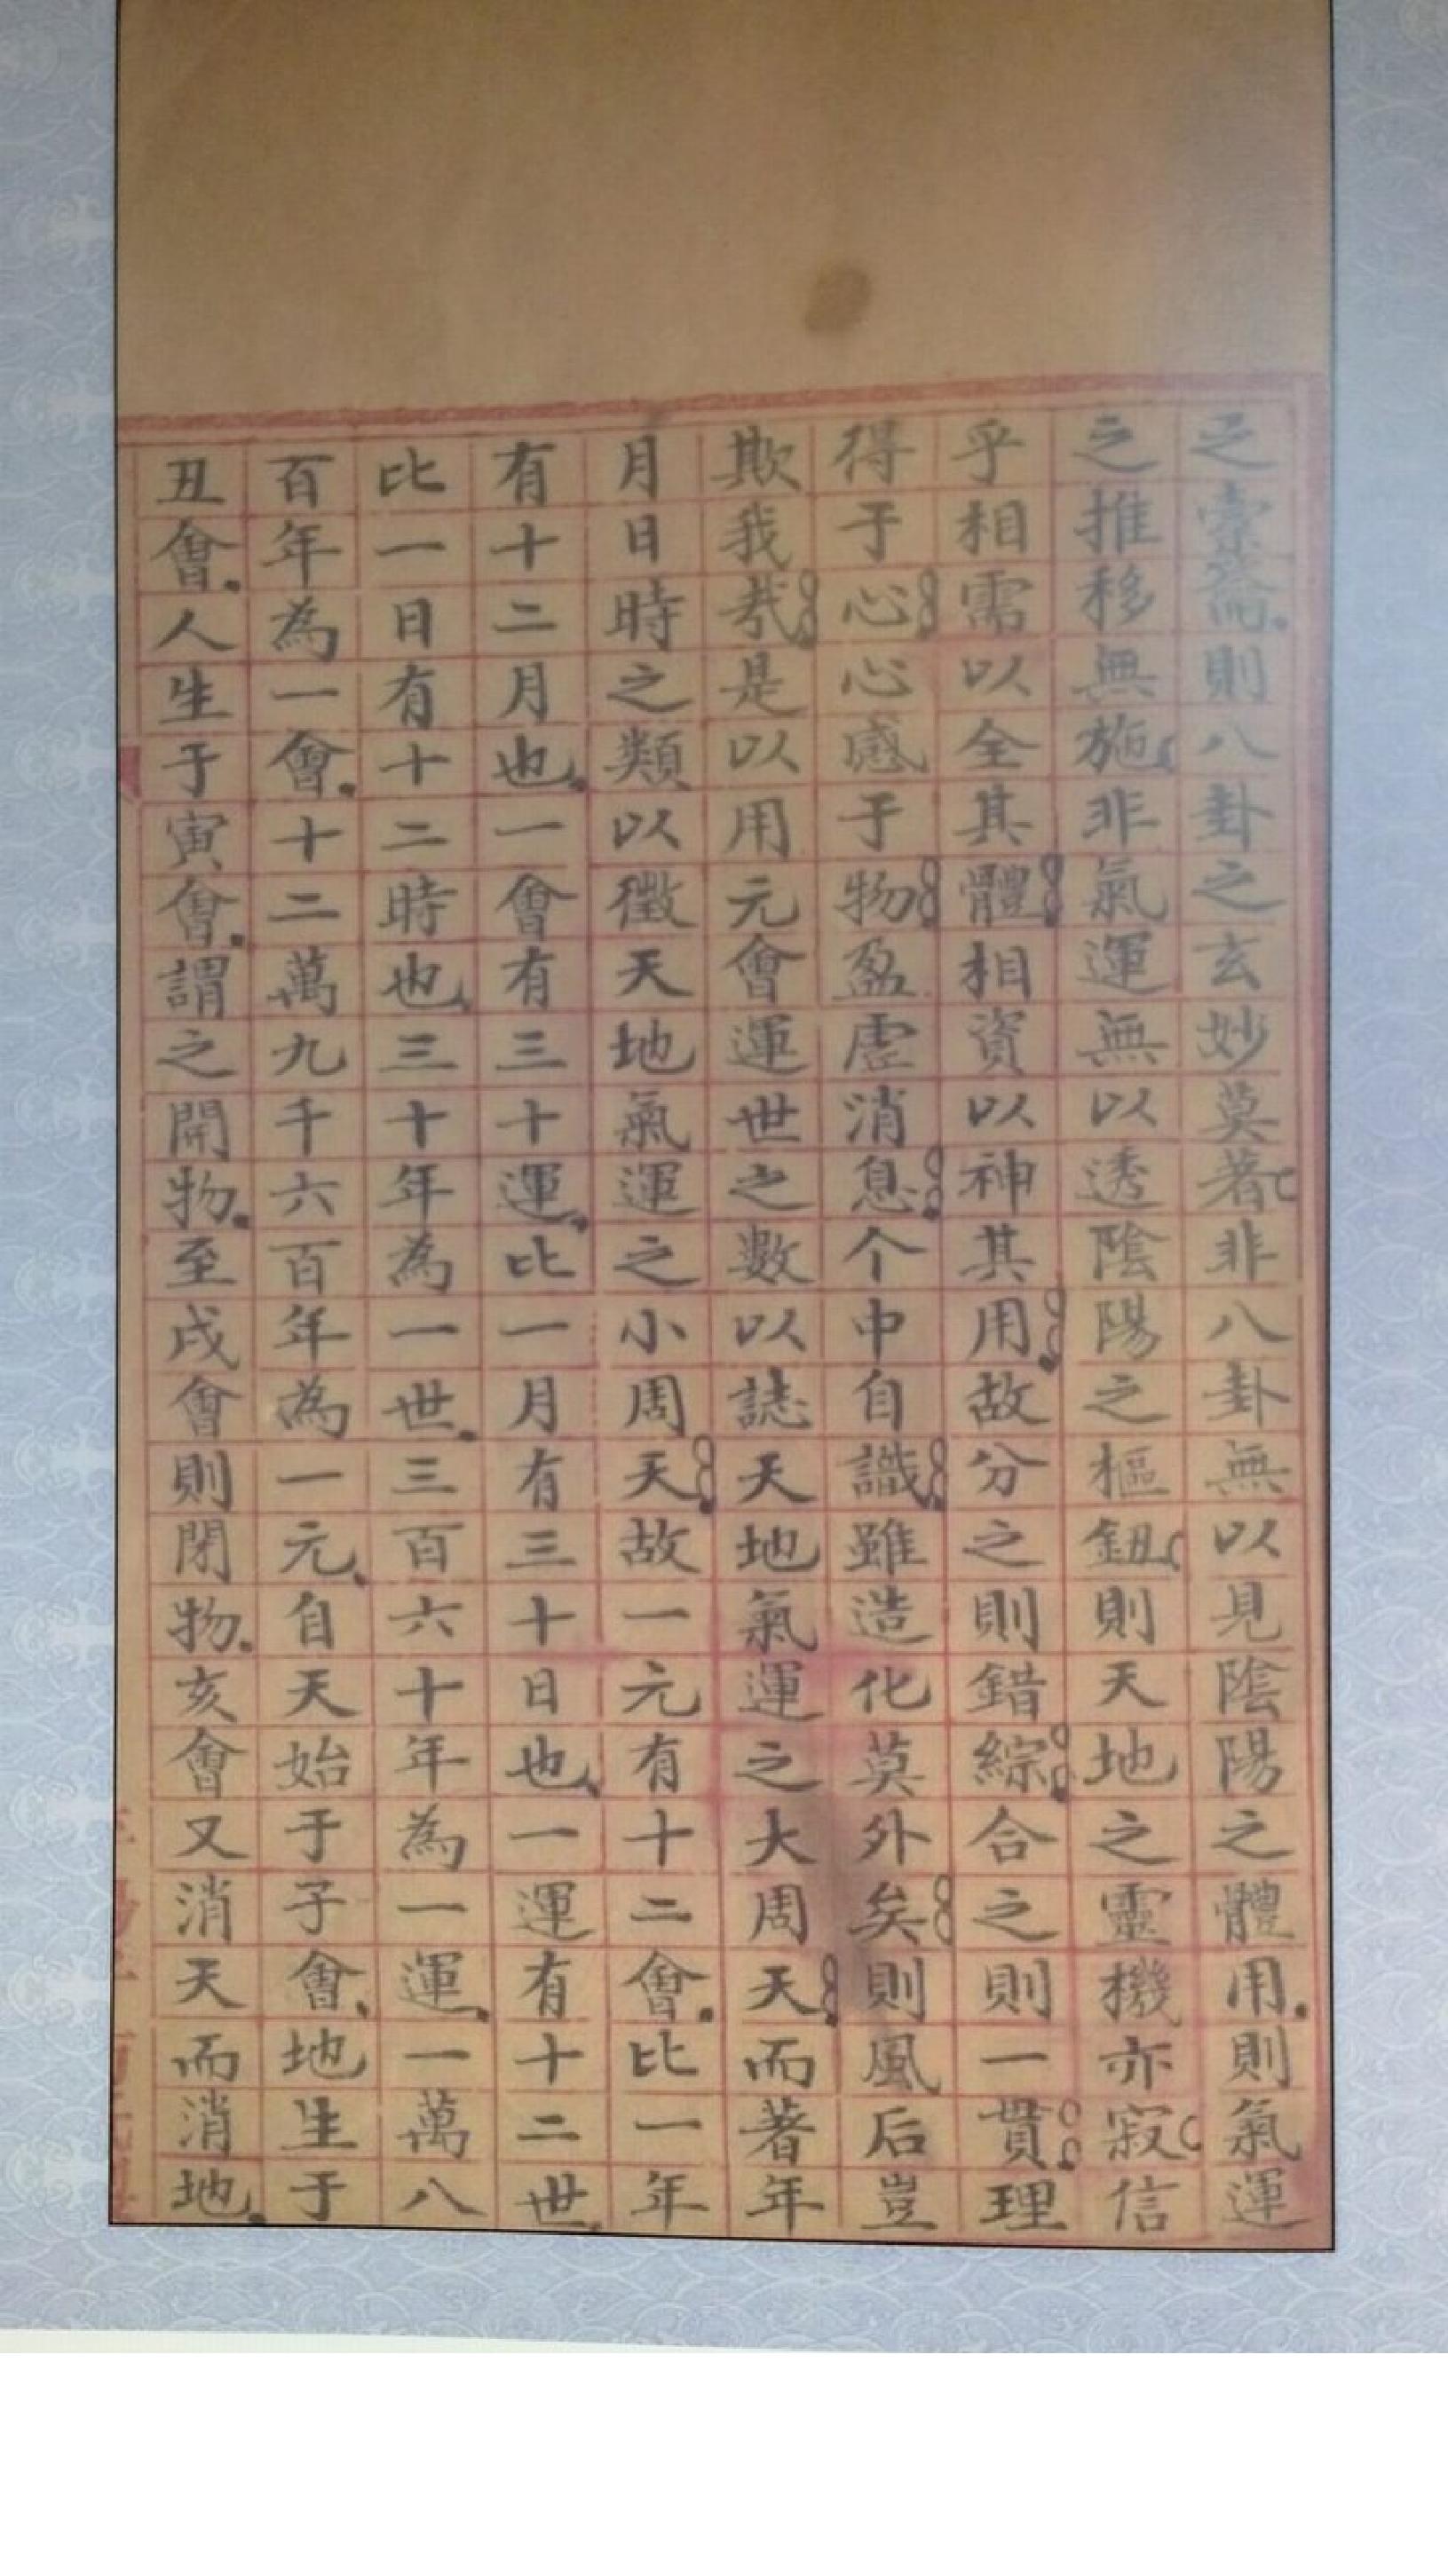 之橐籥則八卦之玄妙莫著非八卦無以見陰陽之體用則氣運
之推移無施非氣運無以透陰陽之樞鈕則天地之靈機亦寂信
乎相需以全其體相資以神其用故分之則錯綜合之則一貫理
得于心心感于物盈虛消息个中自識雖造化莫外矣則風后豈
欺我哉是以用元會運世之數以誌天地氣運之大周天而著年
月日時之類以徵天地氣運之小周天故一元有十二會比一年
有十二月也一會有三十運比一月有三十日也一運有十二世
比一日有十二時也三十年為一世三百六十年為一運一萬八
百年為一會十二萬九千六百年為一元自天始于子會地生于
丑會人生于寅會謂之開物至戌會則閉物亥會又消天而消地